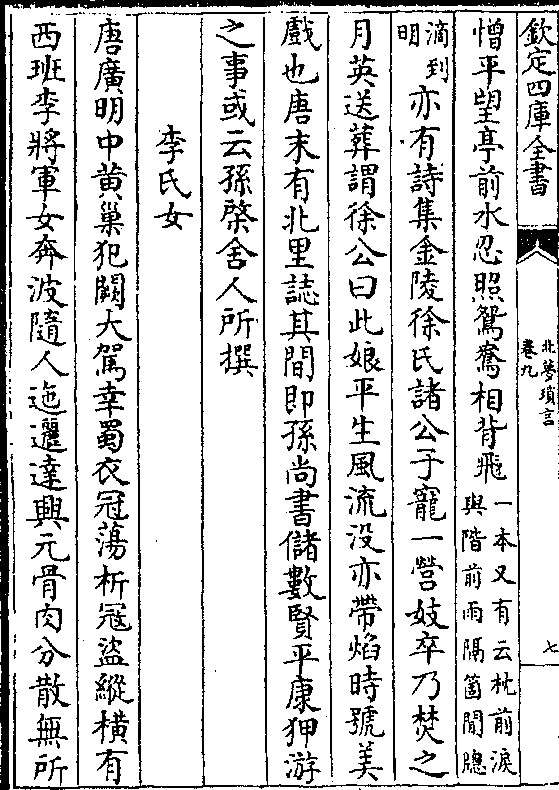 欽定四庫全書
北夢瑣言
卷九
七
憎平望亭前水忍照鴛鴦相背飛
一本又有云枕前淚
與階前雨隔箇閒牕
滴到
明
亦有詩集金陵徐氏諸公子寵一營妓卒乃焚之
月英送葬謂徐公曰此娘平生風流没亦帶焰時號美
戲也唐末有北里誌其間即孫尚書儲數賢平康狎游
之事或云孫棨舍人所撰
李氏女
唐廣明中黄巢犯闕大駕幸蜀衣冠蕩析冦盜縱横有
西班李將軍女奔波隨人迤邐達興元骨肉分散無所